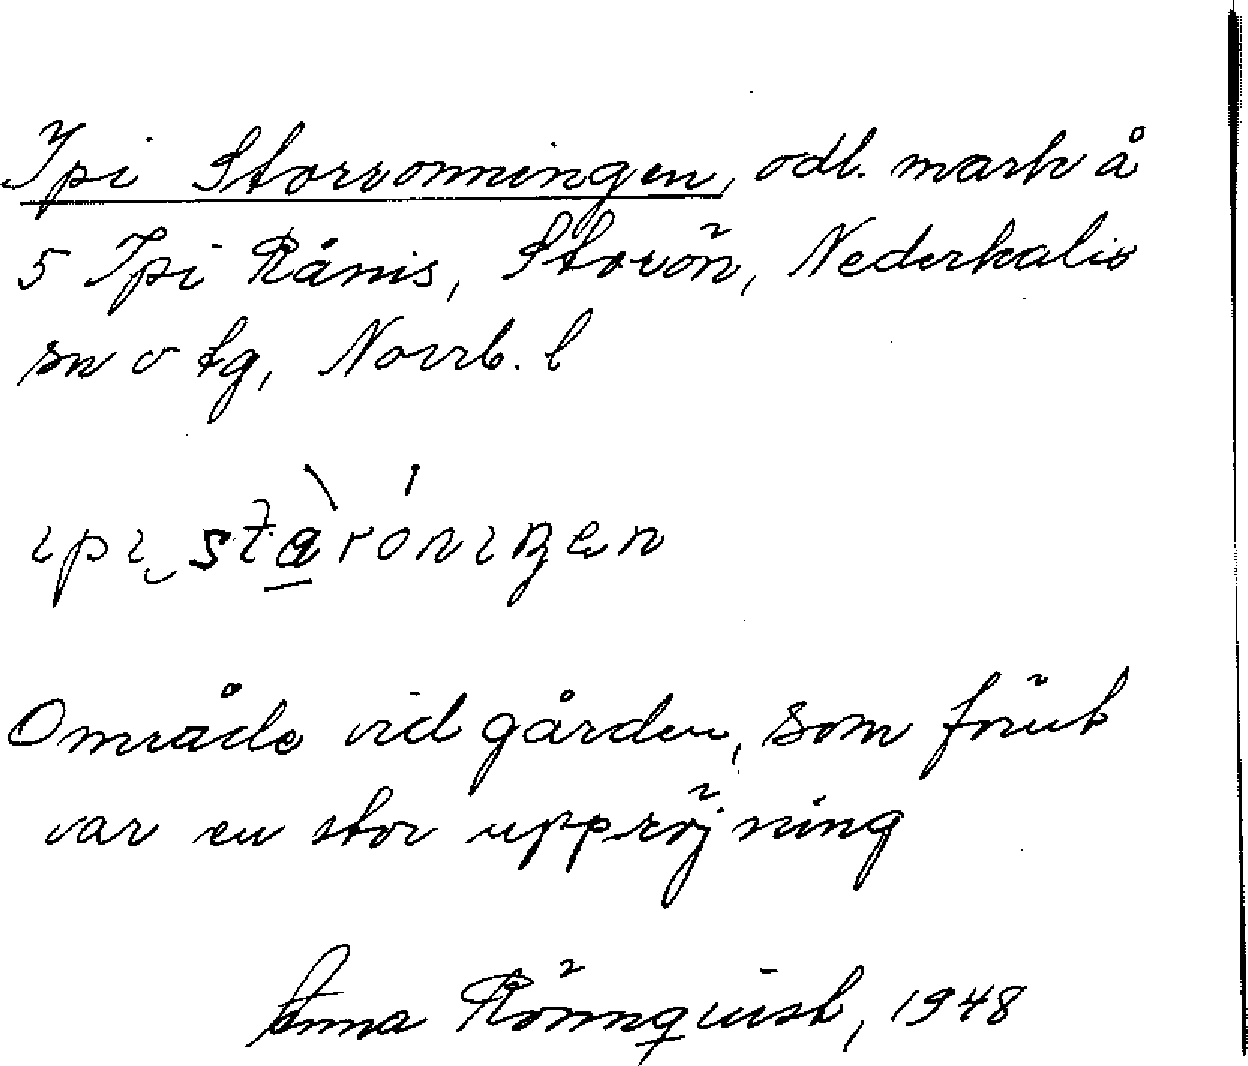 Ipi Storronningen, odl. mark å
5 Ipi Rånis, Storön, Nederkalix
sn o tg, Norrb. l
ıpı stàrónıŋen
Område vid gården, som förut
var en stor uppröjning
Anna Rönnqvist, 1948